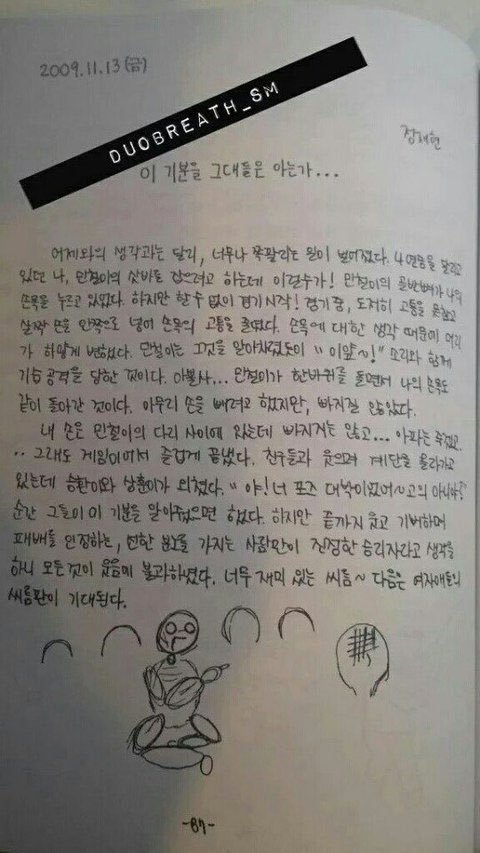 2009.11.13(금)
DUOBREATH_SM
장재현
이 기분을 그대들은 아는가...
어제와의 생각과는 달리, 너무나 쪽팔리는 일이 벌어졌다. 4연승을 달리고
있던 나, 민철이의 샅바를 잡으려고 하는데 이럴수가! 민철이의 골반뼈가 나의
손목을 누르고 있었다. 하지만 한수 없이 경기시작! 경기 중, 도저히 고통을 못참고
살짝 손을 안쪽으로 넣어 손목의 고통을 줄였다. 손목에 대한 생각 때문에 머리
가 하얗게 변했다. 민철이는 그것을 알아차렸듯이 "이얖~!" 소리와 함께
기습공격을 당한 것이다. 아불사... 민철이가 한바퀴를 돌면서 나의 손목도
같이 돌아간 것이다. 아무리 손을 빼려고 했지만, 빠지질 않았다.
내 손은 민철이의 다리 사이에 있는데 빠지지는 않고... 아파는 죽겠고.
.. 그래도 게임이어서 즐겁게 끝냈다. 친구들과 웃으며 계단을 올라가고
있는데 승환이와 상훈이가 외쳤다. "야! 너 포즈 대박이었어~고의 아니야?"
순간 그들이 이 기분을 알아줬으면 했다. 하지만 끝까지 웃고 기뻐하며
패배를 인정하는, 편한 마음을 가지는 사람만이 진정한 승리자라고 생각을
하니 모든것이 웃음에 불과하였다. 너무 재미 있는 씨름~ 다음은 여자애들의
씨름판이 기대된다.
-87-